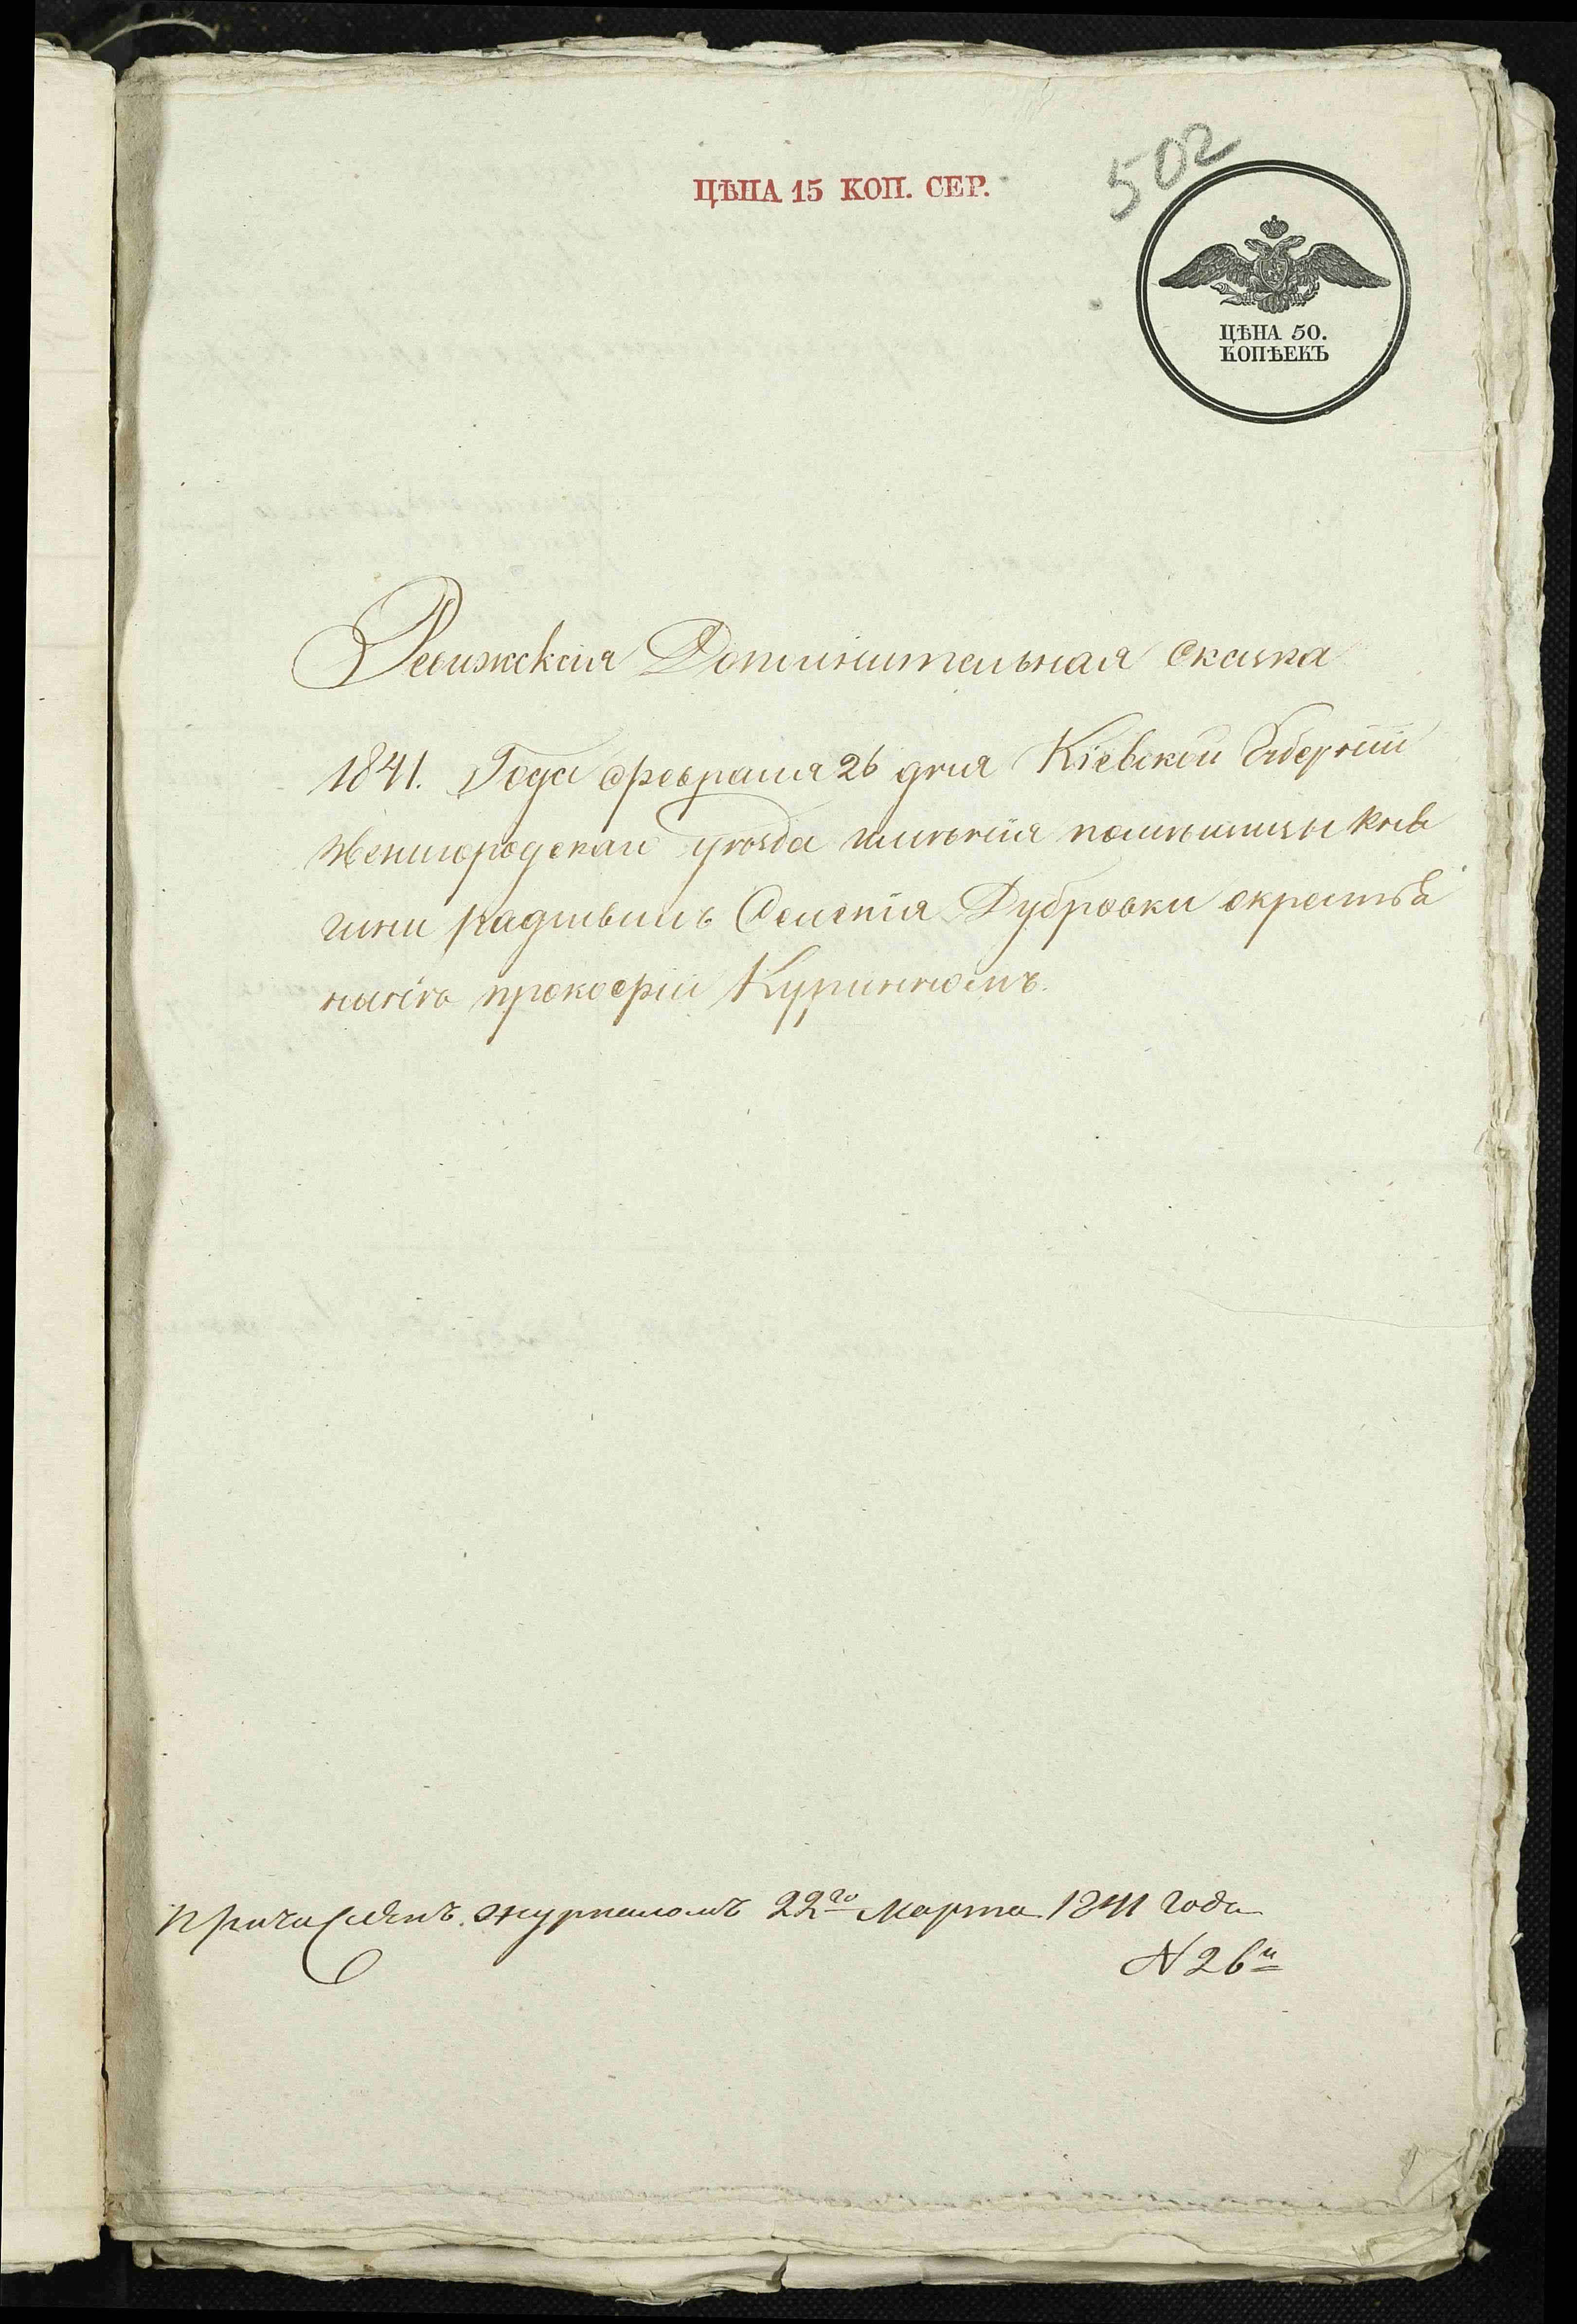 502
ЦѢНА 15 КОП. СЕР.
ЦѢНА 50.
КОПѢЕКЪ
Ревижская Дополнительная скаска
1841. Года февраля 26 дня Кіевской Губерніи
Звенигородскаго уѣзда имѣнія помѣщицы кня
гини радзивилъ Селенія Дубровки о крестья
нинѣ прокофіи Куринномъ.
Причисленъ журналомъ 22го Марта 1841 года
N 26й